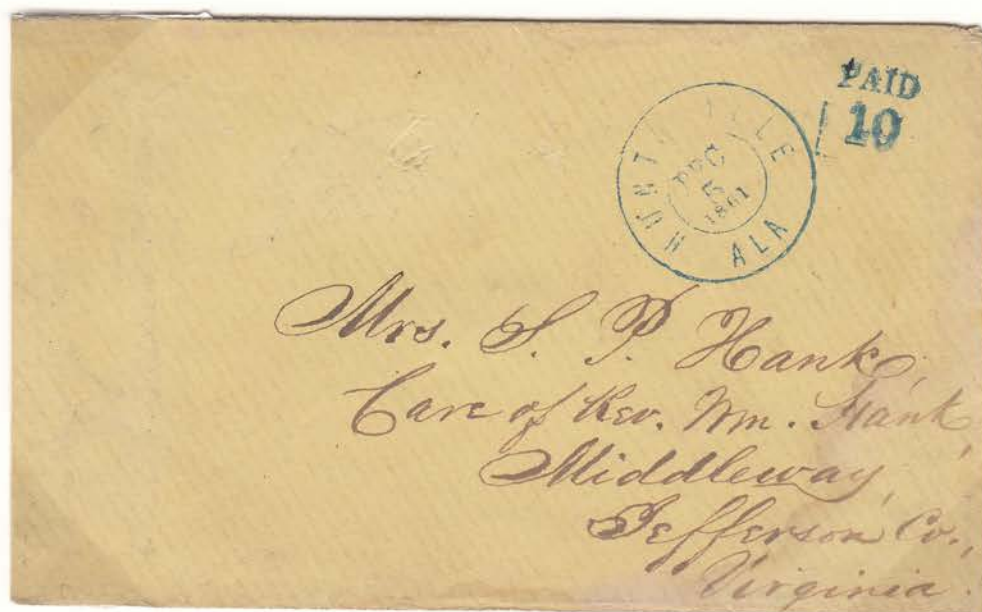 PAID
10
HUNTSVILLE
DEC
5
1861
ALA
Mrs. S. P. Hank,
Care of Rev. Wm. Hank,
Middleway,
Jefferson Co.,
Virginia.